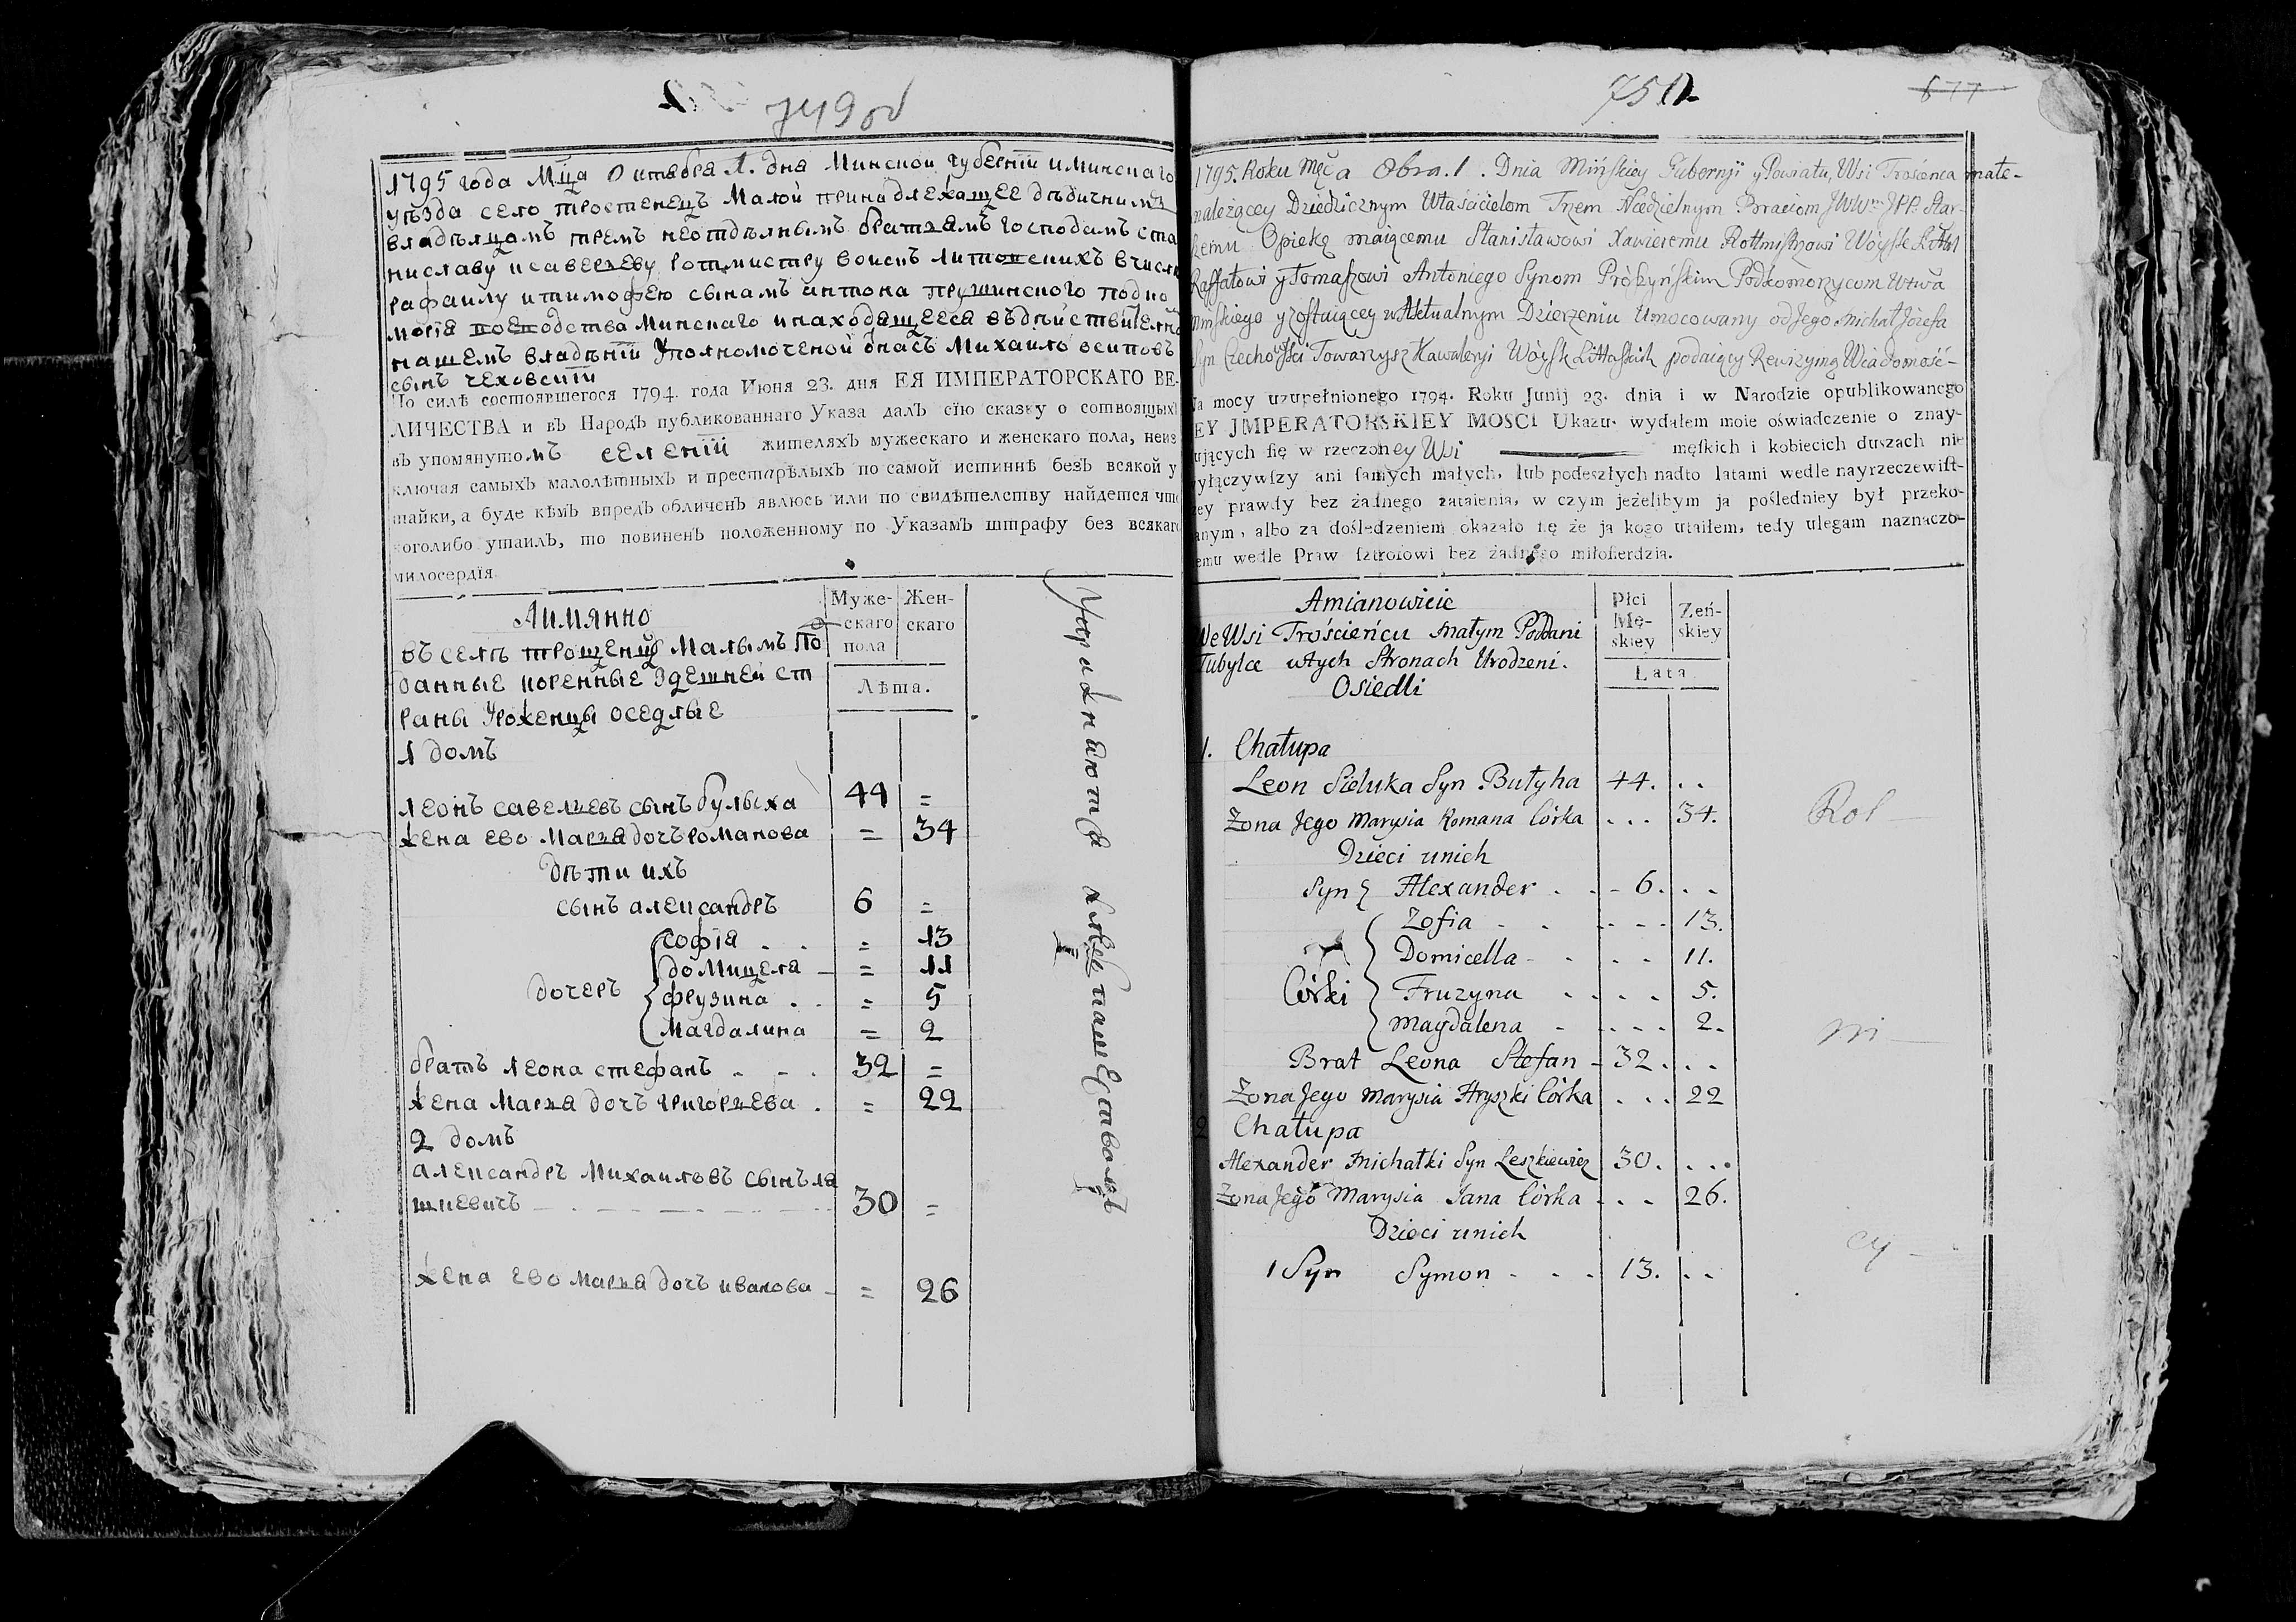 749 об
1795 года Мца Октабра 1. дна Минской губернїи и Минскаго
уѣзда село тростенецъ Малой принадлежащее дѣдичнимъ
владѣлцомъ тремъ неотдѣлнымъ братьамъ господамъ ста
ниславу ксаверьеву ротмистру воискъ литовскихъ
рафаилу и тимофею сынамъ антона прушинского подко
морїа воеводства Минскаго и находащееса въ дѣйствителн
нашемъ владѣнїи Уполномоченой Михаило осиповъ
сынъ чеховскїи
По силѣ состоявшегося 1794. года Июня 23. дня ЕЯ ИМПЕРАТОРСКАГО ВЕ-
ЛИЧЕСТВА и въ Народъ публикованнаго Указа далъ сїю сказку о сотвоящыхъ
въ упомянутомъ селенїи жителяхъ мужескаго и женскаго пола, неис
ключая самыхъ малолѣтныхъ и престарѣлыхъ по самой истиннѣ безъ всякой у
тайки, а буде кѣмъ впредъ обличенъ явлюсь или по свидѣтелству найдется что
коголибо утаилъ, то повиненъ положенному по Указамъ штрафу без всякаго
милосердїя.
Аимянно
Муже-
скаго
пола
Жен-
скаго
Лѣта.
въ селѣ трощенцѣ Малымъ По
данные коренные здешней ст
раны Уроженцы оседлые
1 домъ
леонъ савельевъ сынъ булыха 44 =
жена ево Марьа дочъ романова = 34
дѣти ихъ
сынъ александръ 6 =
софїа . . = 13
домицела = 11
дочеръ
фрузина . . = 5
Магдалина = 2
братъ леона стефанъ - - . 32 =
жена Марьа дочъ григорьева . = 22
2 домъ
александръ Михаиловъ сынъ ла
шкевичъ 30 =
жена ево Марьа дочъ иванова = 26
750
677
1795. Roku Męca 8bra. 1. Dnia Mińskiey Gubernji y Powiatu, Wsi Trościenca małe-
należącey Dziedzicznym Właścicielom Trzem Niedzielnym Braciom JWWm JPP. Star-
szemu Opiekę maiącemu Stanisławowi Xawieremu Rottmistrzowi Woysk
Raffałowi y Tomaszowi Antoniego Synom Prószyńskim Podkomorzycom Wtwa
Mińskiego y zostaiącey w Aktualnym Dzierżeniu Umocowany od Jego Michał Józefa
Syn Czechowski Towarzysz Kawaleryi Woysk Littaskich podaiący Rewizyiną Wiadomość-
Na mocy uzupełnionego 1794. Roku Junij 23. dnia i w Narodzie opublikowanego
EY JMPERATORSKIEY MOSCI Ukazu. wydałem moie oświadczenie o znay-
ujących się w rzeczoney Wsi męskich i kobiecich duszach nie
yłączywszy ani samych małych, lub podeszłych nadto latami wedle nayrzeczewist-
zey prawdy bez żadnego zataienia, w czym jeżelibym ja pośledniey był przeko-
anym, albo za dośledzeniem okazało się że ja kogo utaiłem, tedy ulegam naznaczo-
emu wedle Praw sztrofowi bez żadnego miłosierdzia.
Amianowicie
Płci
Mę-
skiey
Zeń-
skiey
Lata
We Wsi Trościeńcu małym Poddani
Tubylce wtych Stronach Urodzeni.
Osiedli
1. Chałupa
Leon Sieluka Syn Bułyha 44. . .
Zona Jego Marysia Romana Córka . . . 34.
Dzieci unich
Syn Alexander . . - 6. . .
Zofia - . . - - - 13.
Domicella - . . . - 11.
Córki
Fruzyna . . . . 5.
Magdalena - . - - . 2.
Brat Leona Stefan - 32. . .
Zona Jego Marysia Hryszki Córka . . . 22
2 Chałupa
Alexander Michałki Syn Leszkiewicz 30. . . .
Zona Jego Marysia Jana Córka . . . 26.
Dzieci unich
1 Syn Symon - . . 13. . .
Rol -
ni -
cy -